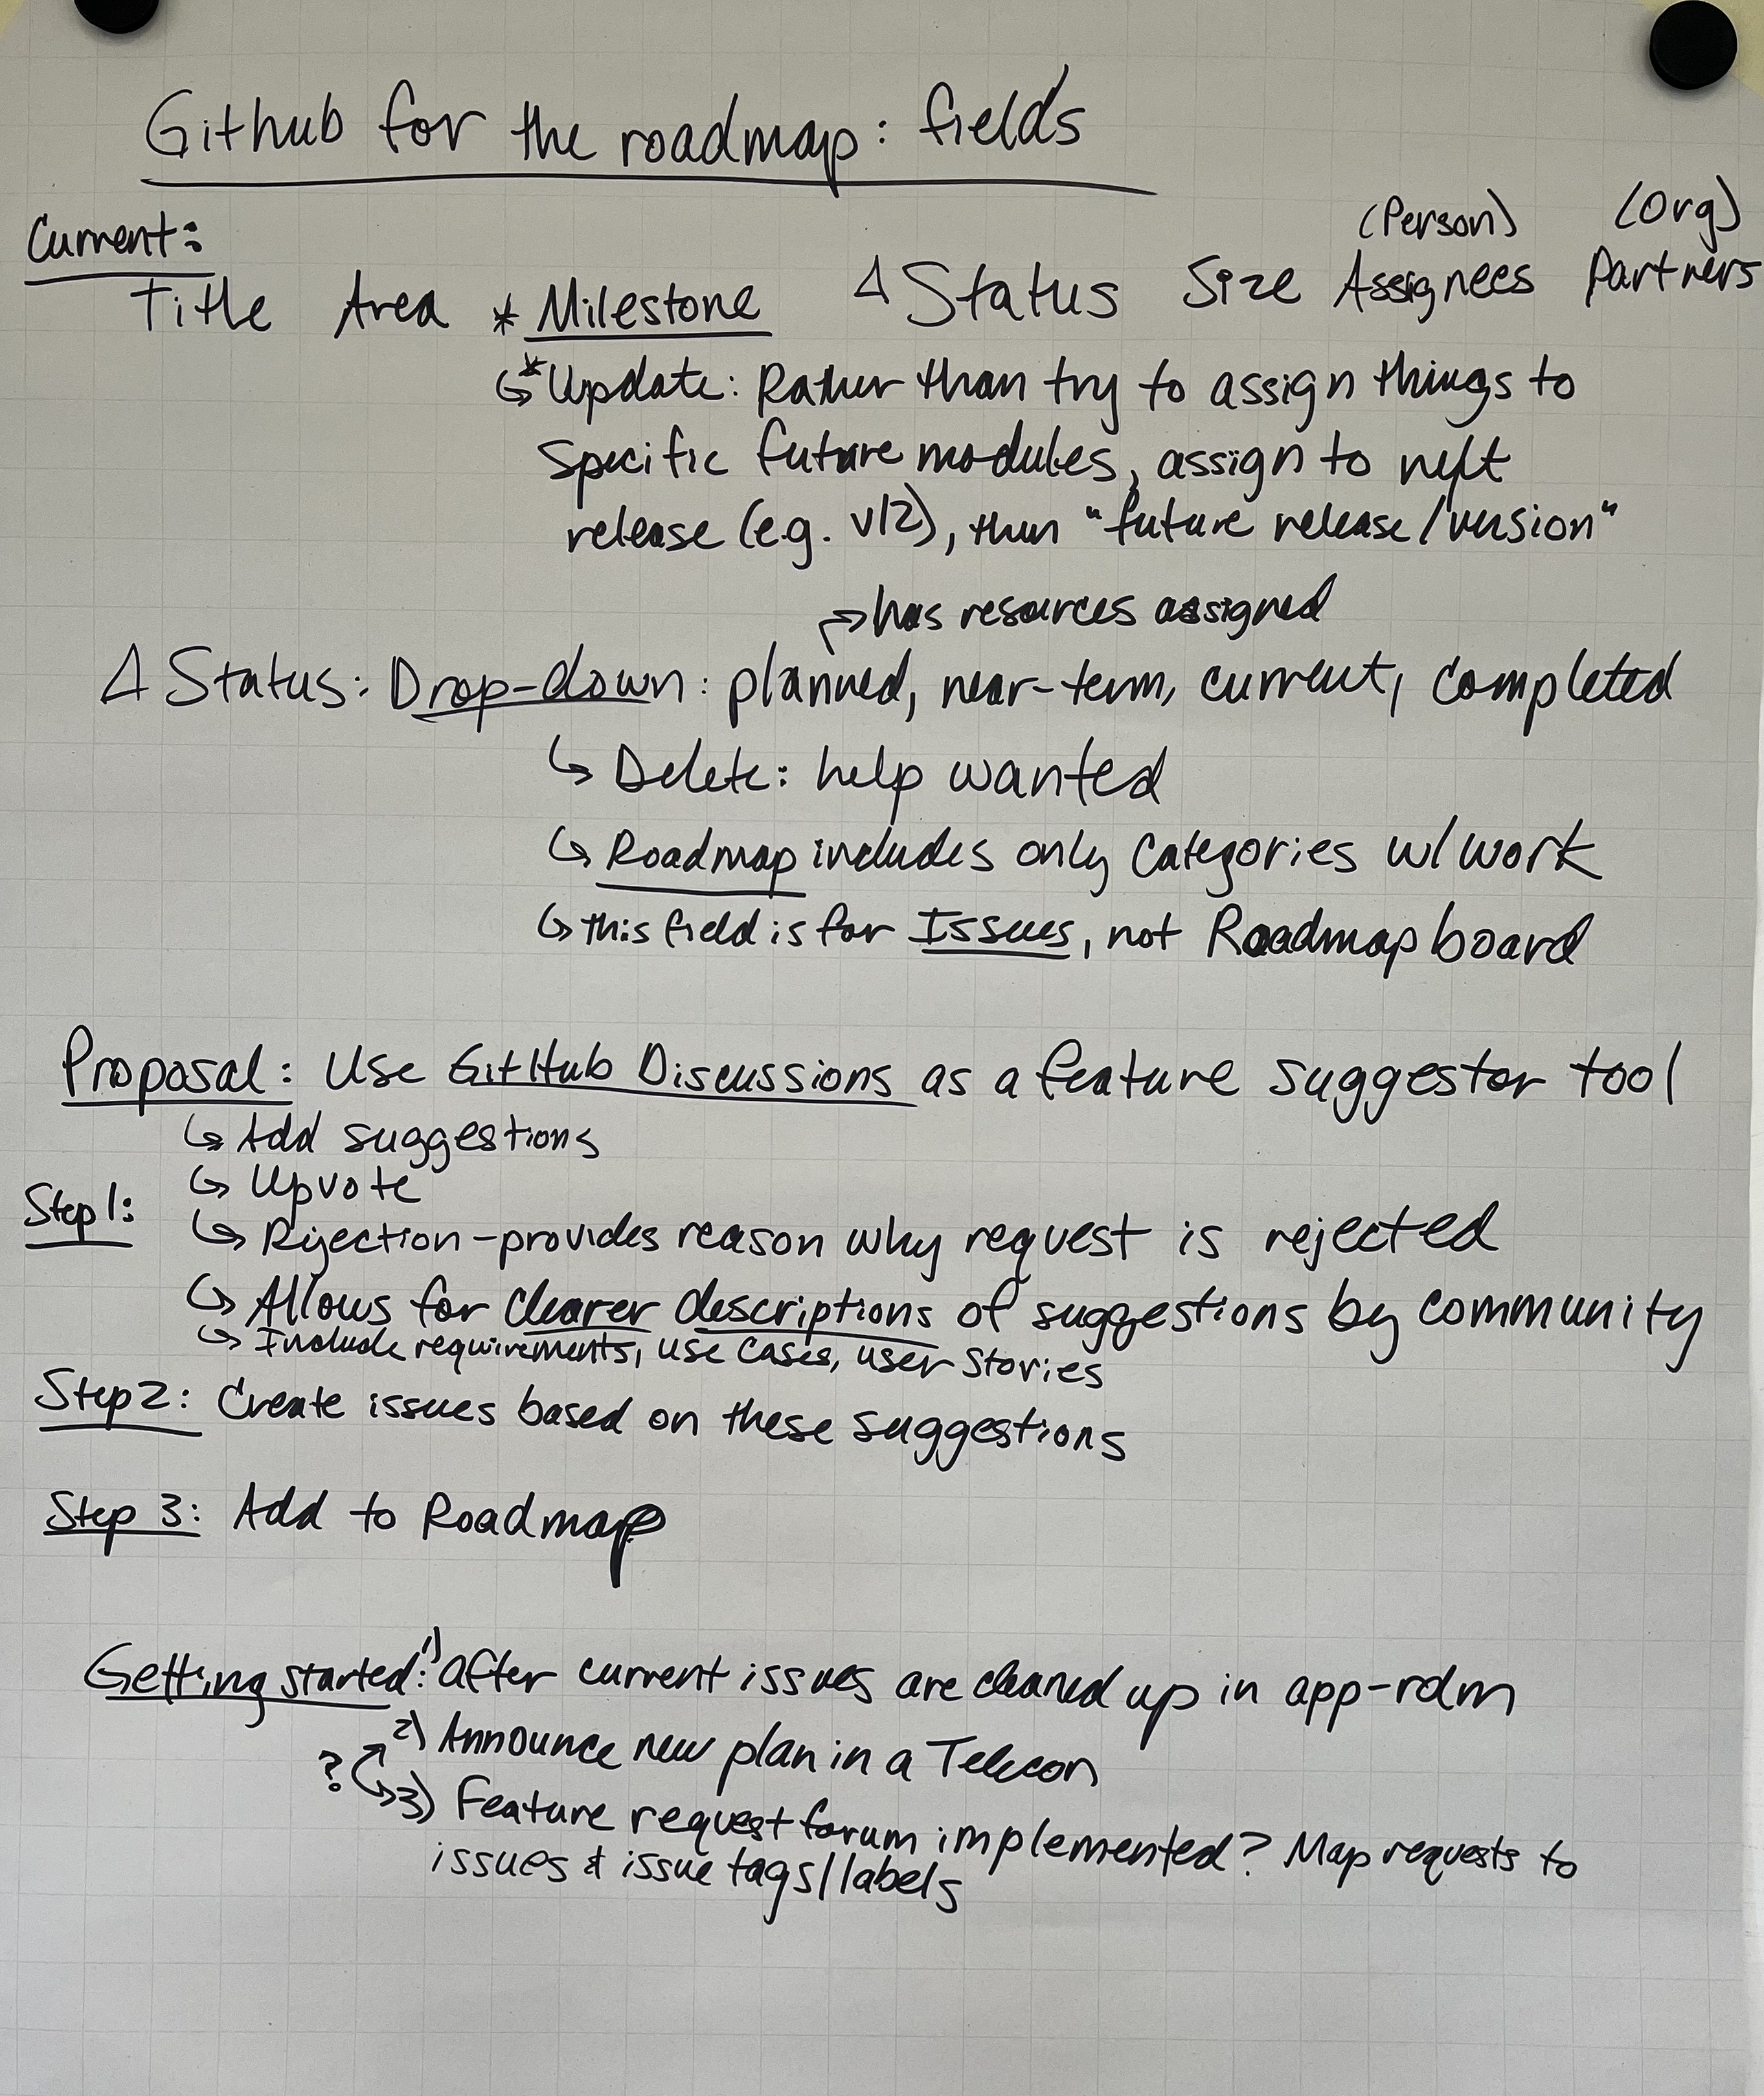 Github for the roadmap: fields
Current:
(Person) (Org)
Title Area * Milestone Δ Status Size Assignees Partners
↳ * Update: Rather than try to assign things to
specific future modules, assign to next
release (e.g. v12), then "future release/version"
↱ has resources assigned
Δ Status: Drop-down: planned, near-term, current, completed
↳ Delete: help wanted
↳ Roadmap includes only categories w/work
↳ this field is for Issues, not Roadmap board
Proposal: Use GitHub Discussions as a feature suggestor tool
↳ Add suggestions
↳ Upvote
Step 1:
↳ Rejection - provides reason why request is rejected
↳ Allows for clearer descriptions of suggestions by community
↳ Include requirements, use cases, user stories
Step 2: Create issues based on these suggestions
Step 3: Add to Roadmap
Getting started: 1) after current issues are cleaned up in app-rdm
2) Announce new plan in a Telecon
? 3) Feature request forum implemented? Map requests to
issues & issue tags/labels